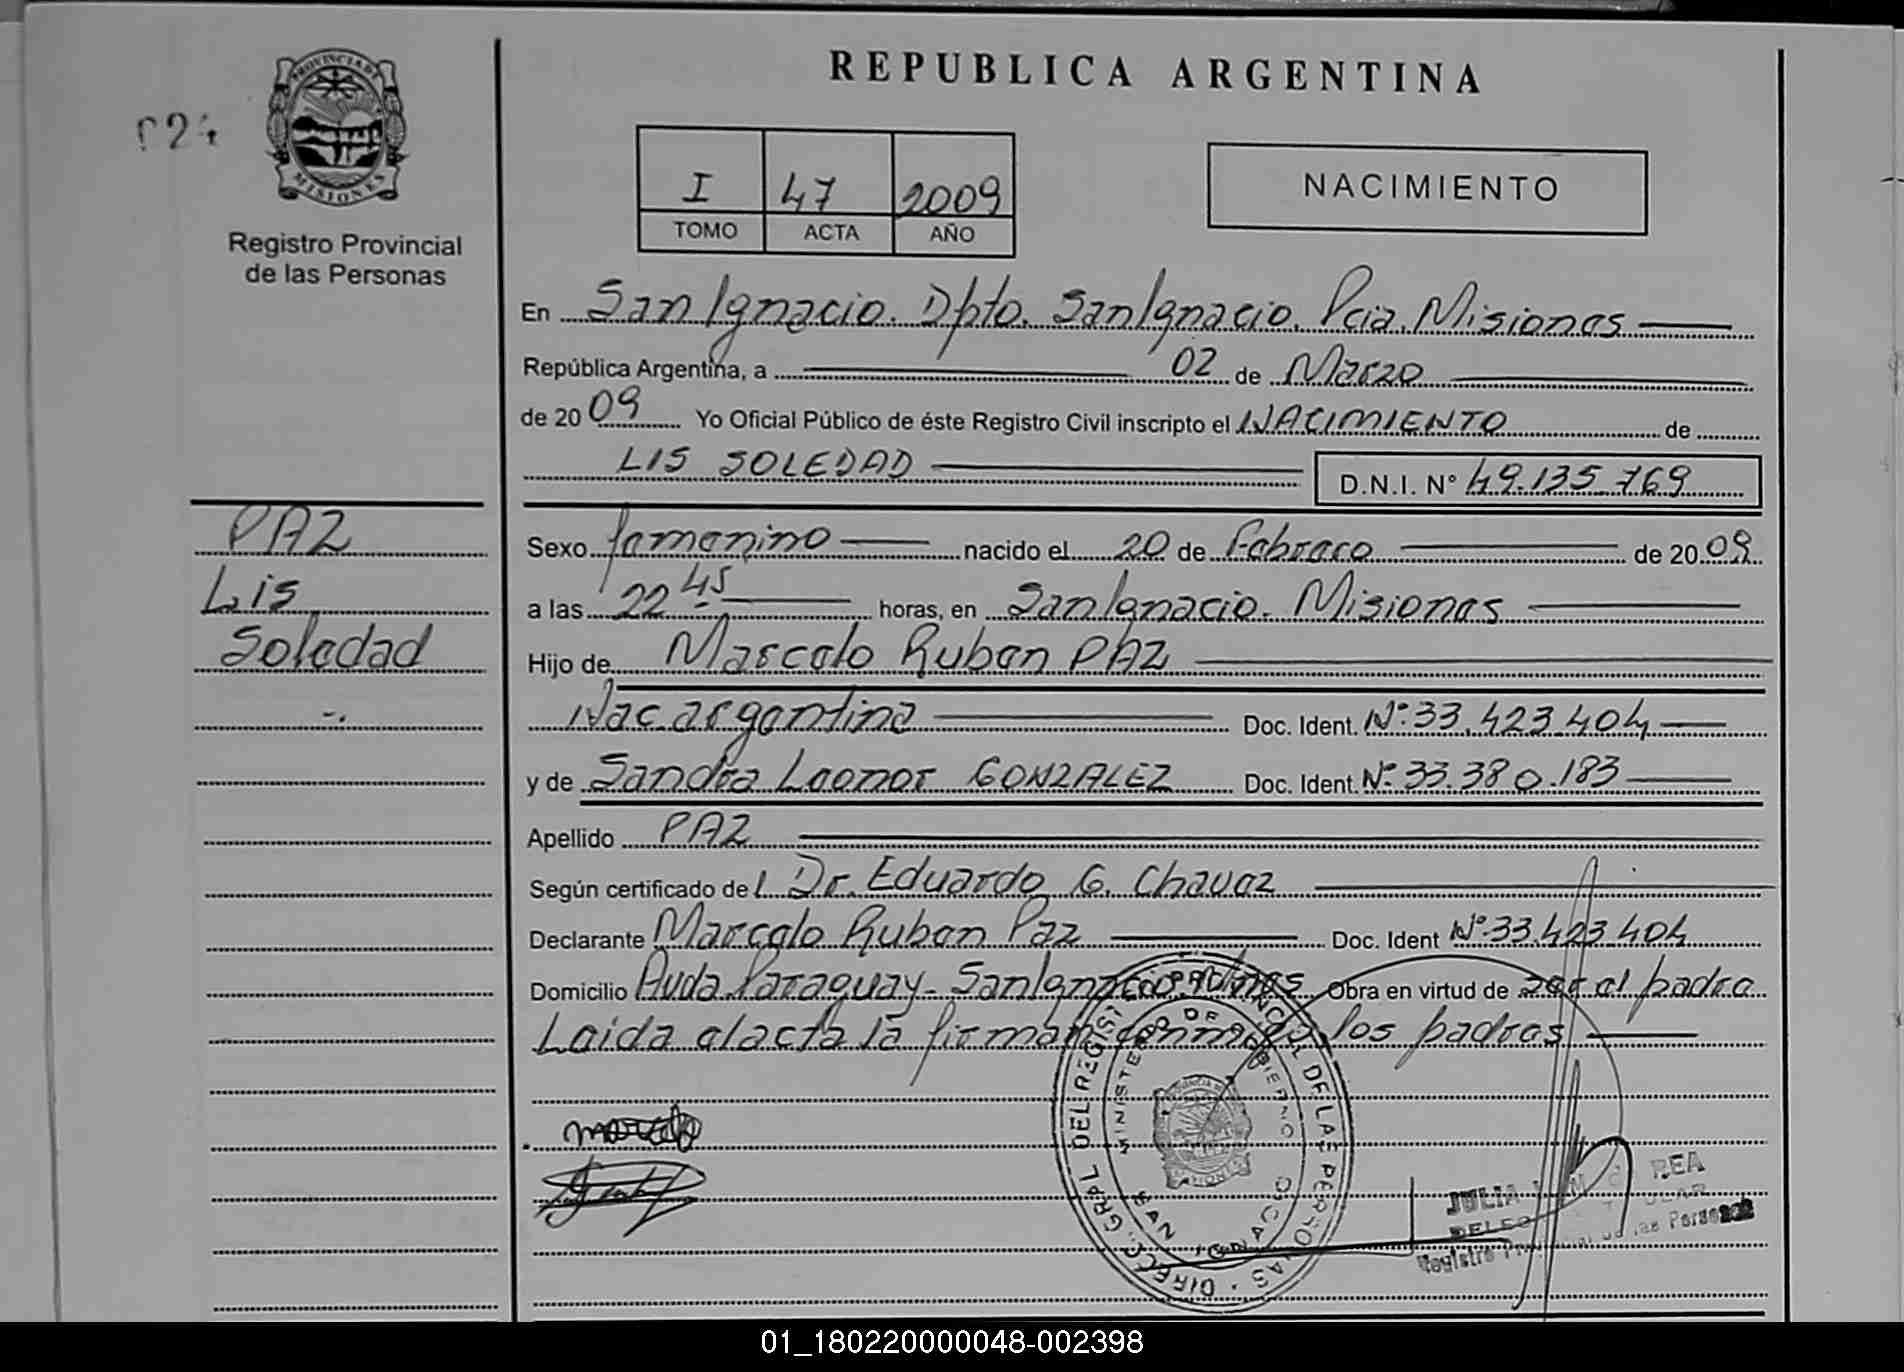 REPUBLICA ARGENTINA
PROVINCIA DE
MISIONES
Registro Provincial
de las Personas
I 47 2009
TOMO ACTA AÑO
NACIMIENTO
En San Ignacio. Dpto. San Ignacio. Pcia. Misiones
República Argentina, a 02 de Marzo
de 2009 Yo Oficial Público de éste Registro Civil inscripto el NACIMIENTO de
LIS SOLEDAD D.N.I. N° 49.135.769
PAZ
Lis
Soledad
Sexo femenino nacido el 20 de Febrero de 2009
a las 22 45 horas, en San Ignacio. Misiones
Hijo de Marcelo Ruben PAZ
Nac argentina Doc. Ident. N°: 33.423.404
y de Sandra Leonor GONZALEZ Doc. Ident. N°: 33.380.183
Apellido PAZ
Según certificado del Dr. Eduardo G. Chavez
Declarante Marcelo Ruben Paz Doc. Ident N°: 33.423.404
Domicilio Avda. Paraguay - San Ignacio. Mnes Obra en virtud de ser el padre
Leida el acta la firman los padres
DIREC. GRAL DEL REGIST. PROVINCIAL DE LAS PERSONAS
MINISTERIO DE GOBIERNO
SAN IGNACIO
JULIA REA
TITULAR
Registro Provincial de las Personas
01_180220000048-002398